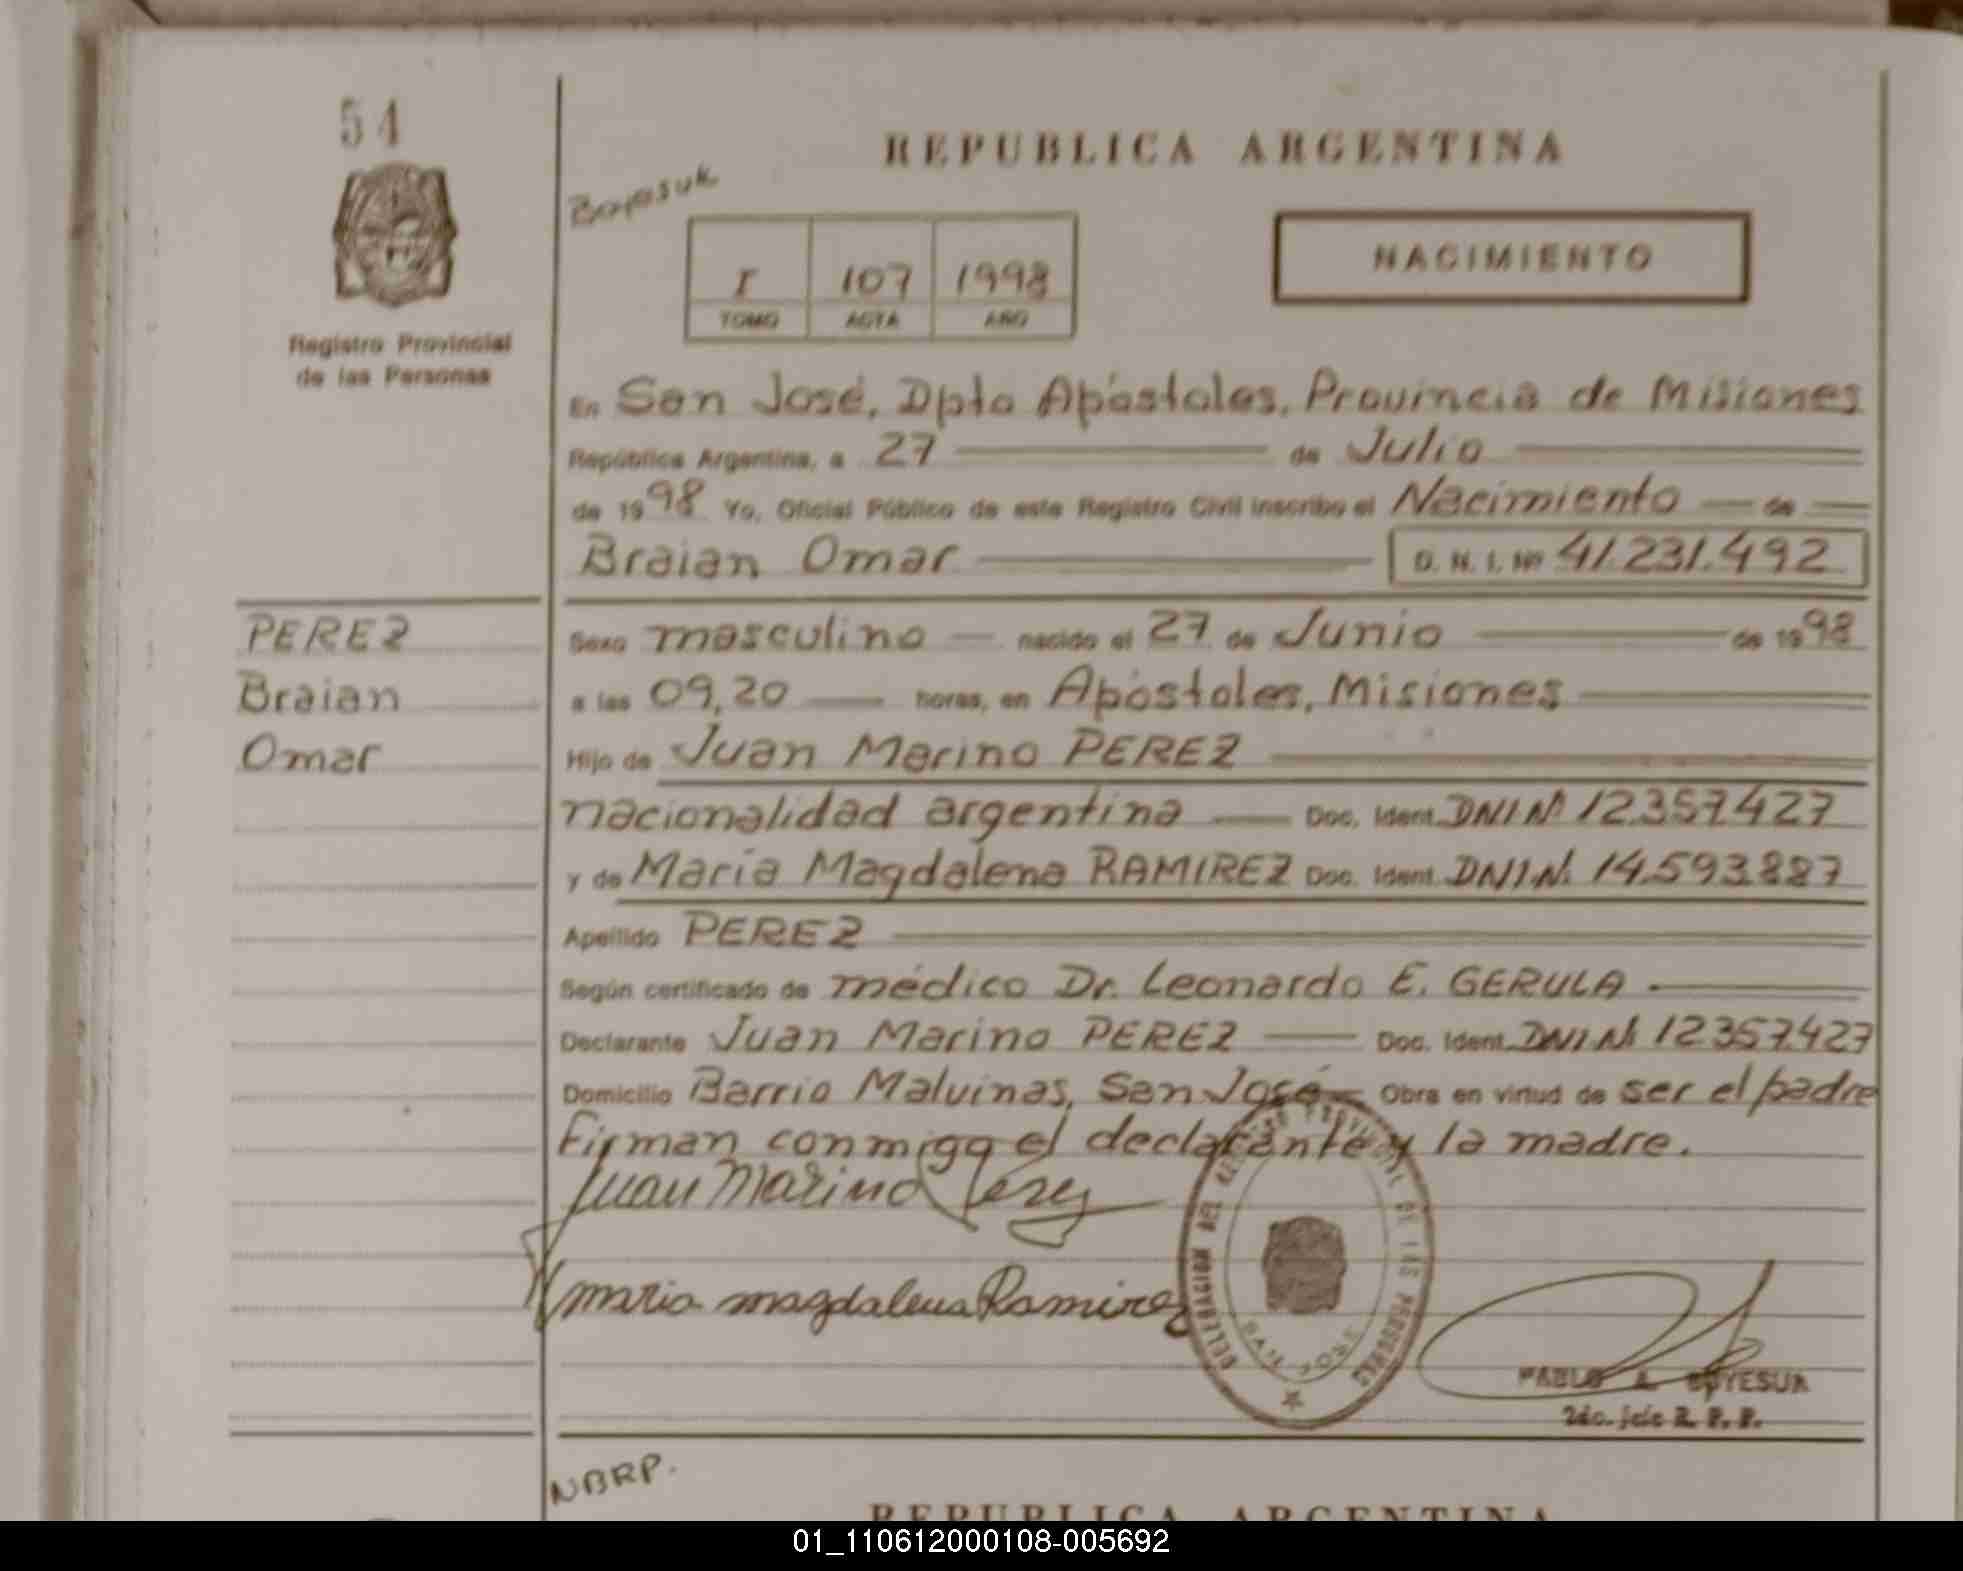 54
REPUBLICA ARGENTINA
Boyesuk
NACIMIENTO
I 107 1998
TOMO ACTA AÑO
Registro Provincial
de las Personas
En San José, Dpto Apóstoles, Provincia de Misiones
República Argentina, a 27 de Julio
de 1998 Yo, Oficial Público de este Registro Civil inscribo el Nacimiento de
Braian Omar D. N. I. Nº 41.231.492
PEREZ
Braian
Omar
Sexo masculino nacido el 27 de Junio de 1998
a las 09,20 horas, en Apóstoles, Misiones
Hijo de Juan Marino PEREZ
nacionalidad argentina Doc. Ident. DNI Nº 12.357.427
y de María Magdalena RAMIREZ Doc. Ident. DNI Nº 14.593.887
Apellido PEREZ
Según certificado de médico Dr. Leonardo E. GERULA
Declarante Juan Marino PEREZ Doc. Ident. DNI Nº 12.357.427
Domicilio Barrio Malvinas, San José Obra en virtud de ser el padre
Firman conmigo el declarante y la madre.
Juan Marino Perez
maria magdalena Ramirez
DELEGACION DEL REGISTRO PROVINCIAL DE LAS PERSONAS
SAN JOSE
PABLO A. BOYESUK
2do. jefe R. P. P.
NBRP.
REPUBLICA ARGENTINA
01_110612000108-005692